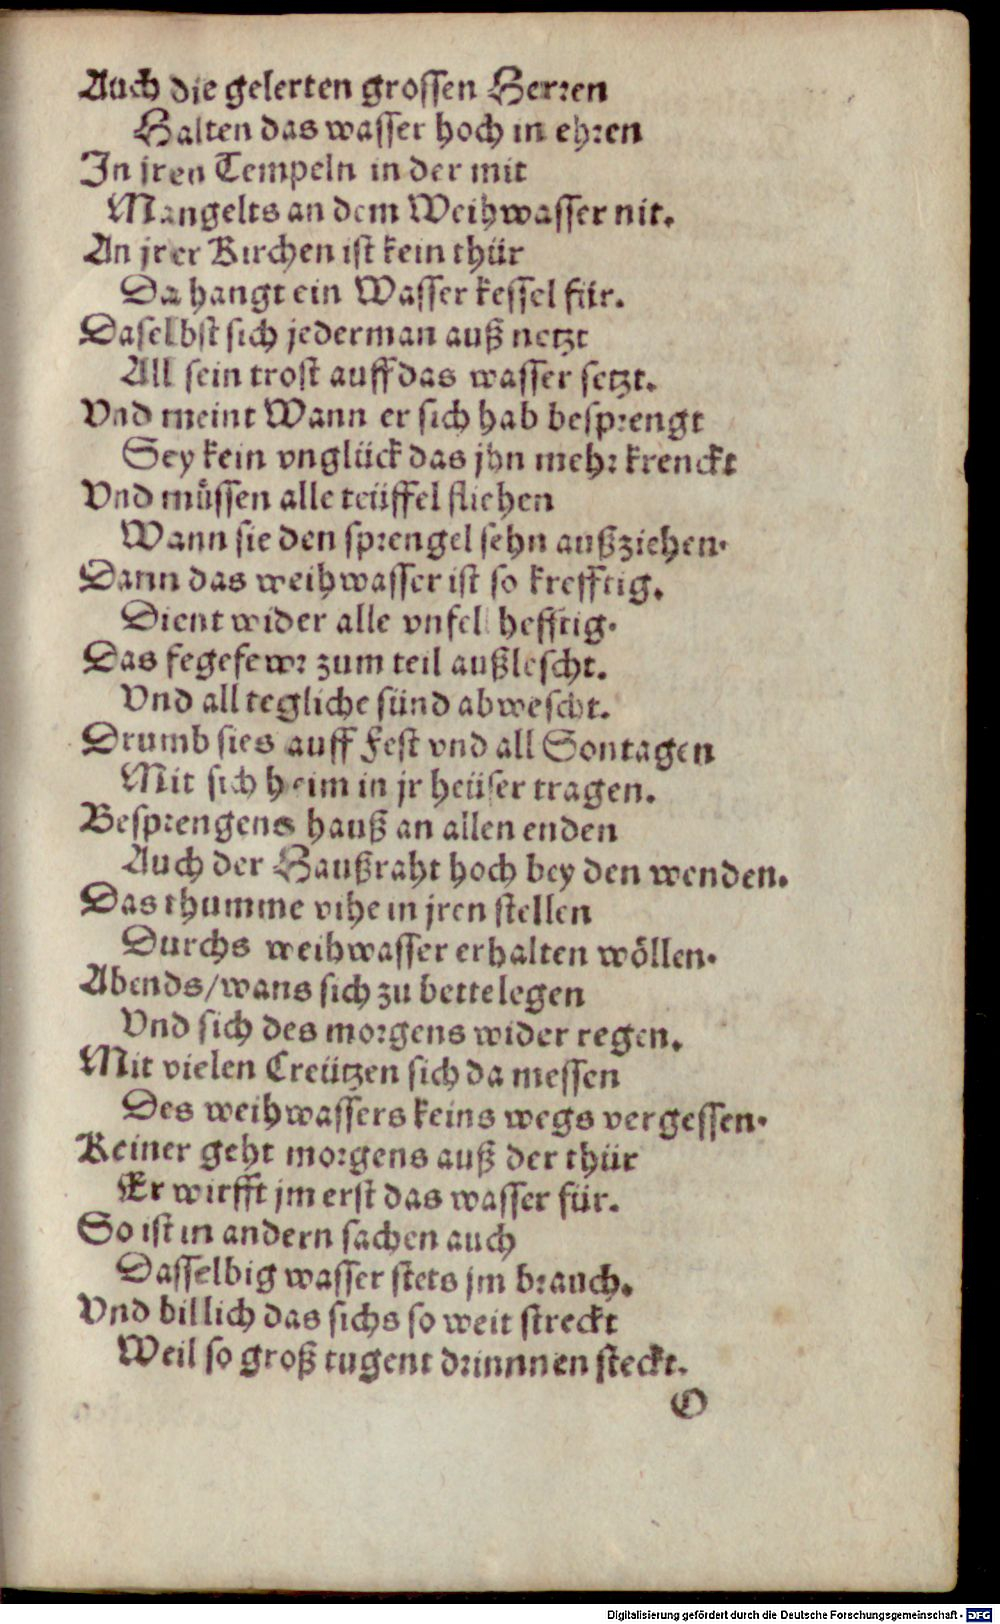 Auch die gelerten grossen Herren
Halten das wasser hoch in ehren
In jren Tempeln in der mit
Mangelts an dem Weihwasser nit.
An jrer Kirchen ist kein thür
Da hangt ein Wasser kessel für.
Daselbst sich jederman auß netzt
All sein trost auff das wasser setzt.
Vnd meint Wann er sich hab besprengt
Sey kein vnglück das jhn mehr krenckt
Vnd müssen alle teüffel fliehen
Wann sie den sprengel sehn außziehen.
Dann das weihwasser ist so krefftig.
Dient wider alle vnfell hefftig.
Das fegefewr zum teil außlescht.
Vnd all tegliche sünd abwescht.
Drumb sies auff Fest vnd all Sontagen
Mit sich heim in jr heüser tragen.
Besprengens hauß an allen enden
Auch der Haußraht hoch bey den wenden.
Das thumme vihe in jren stellen
Durchs weihwasser erhalten wöllen.
Abends/wans sich zu bette legen
Vnd sich des morgens wider regen.
Mit vielen Creützen sich da messen
Des weihwassers keins wegs vergessen.
Keiner geht morgens auß der thür
Er wirfft jm erst das wasser für.
So ist in andern sachen auch
Dasselbig wasser stets jm brauch.
Vnd billich das sichs so weit streckt
Weil so groß tugent drinnnen steckt.
O
Digitalisierung gefördert durch die Deutsche Forschungsgemeinschaft - DFG